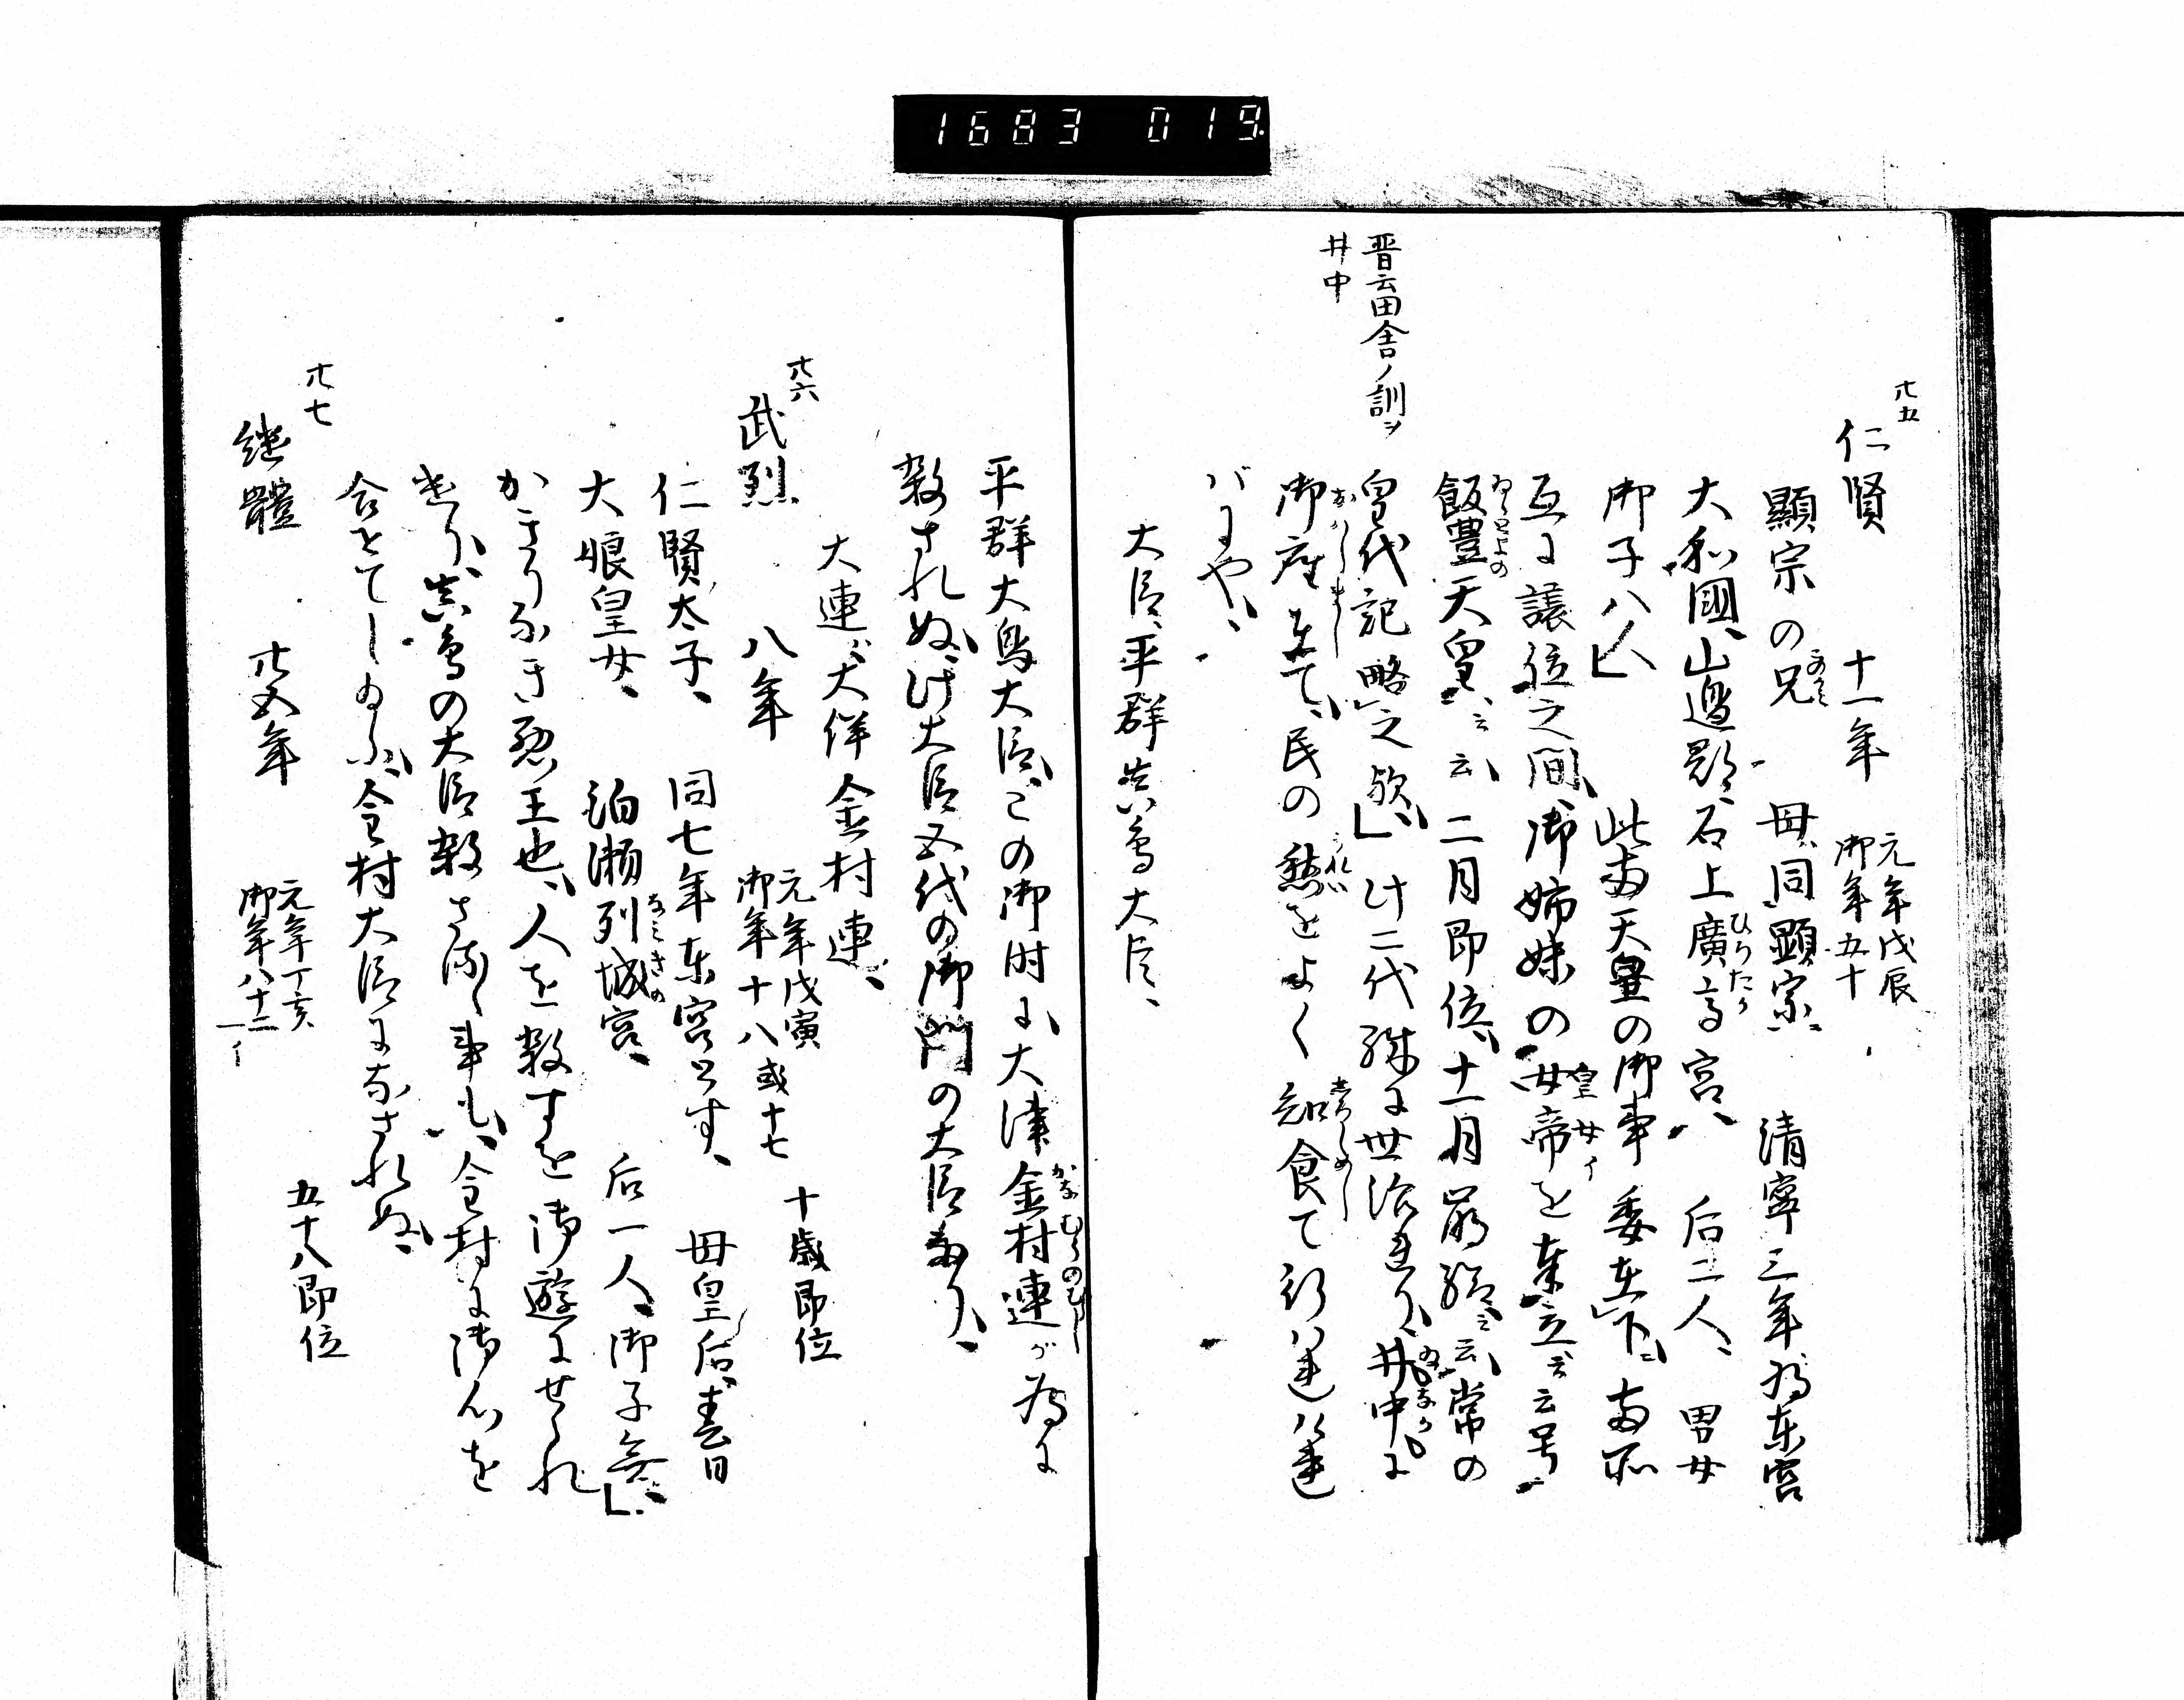 1683 019
廿五
仁賢 十一年 元年戊辰 御年五十
顯宗の兄 母同顯宗 清寧三年為東宮
大和國、山邊郡、石上廣高宮、 后二人、男女
御子八人 此両天皇の御事委在下、両所
互に譲位之間、御姉妹の女帝を奉立云号
皇女イ
飯豊天皇云云、二月即位、十一月崩給云云、常の
皇代記略之歟、此二代殊に世治れり、井中に
晋云田舎ノ訓ヲ
井中
御座まして、民の愁をよく知食て行はれければ
バにや、
大臣、平群真鳥大臣、
平群大鳥大臣、この御時に、大津金村連が為に
殺されぬ、此大臣五代の御門の大臣なり、
大連ハ大伴金村連、
廿六
武烈 八年 元年戊寅 御年十八或十七 十歳即位
仁賢太子、 同七年東宮とす、 母皇后春日
大娘皇女、 泊瀬列城宮、 后一人、御子無、
かぎりなき悪王也、人を殺すを御遊にせられ
けり、真鳥の大臣殺さるる事も、金村に御心を
合せてしゐふ、金村大臣になされぬ、
廿七
継體 廿五年 元年丁亥 御年八十二 五十八即位
一イ